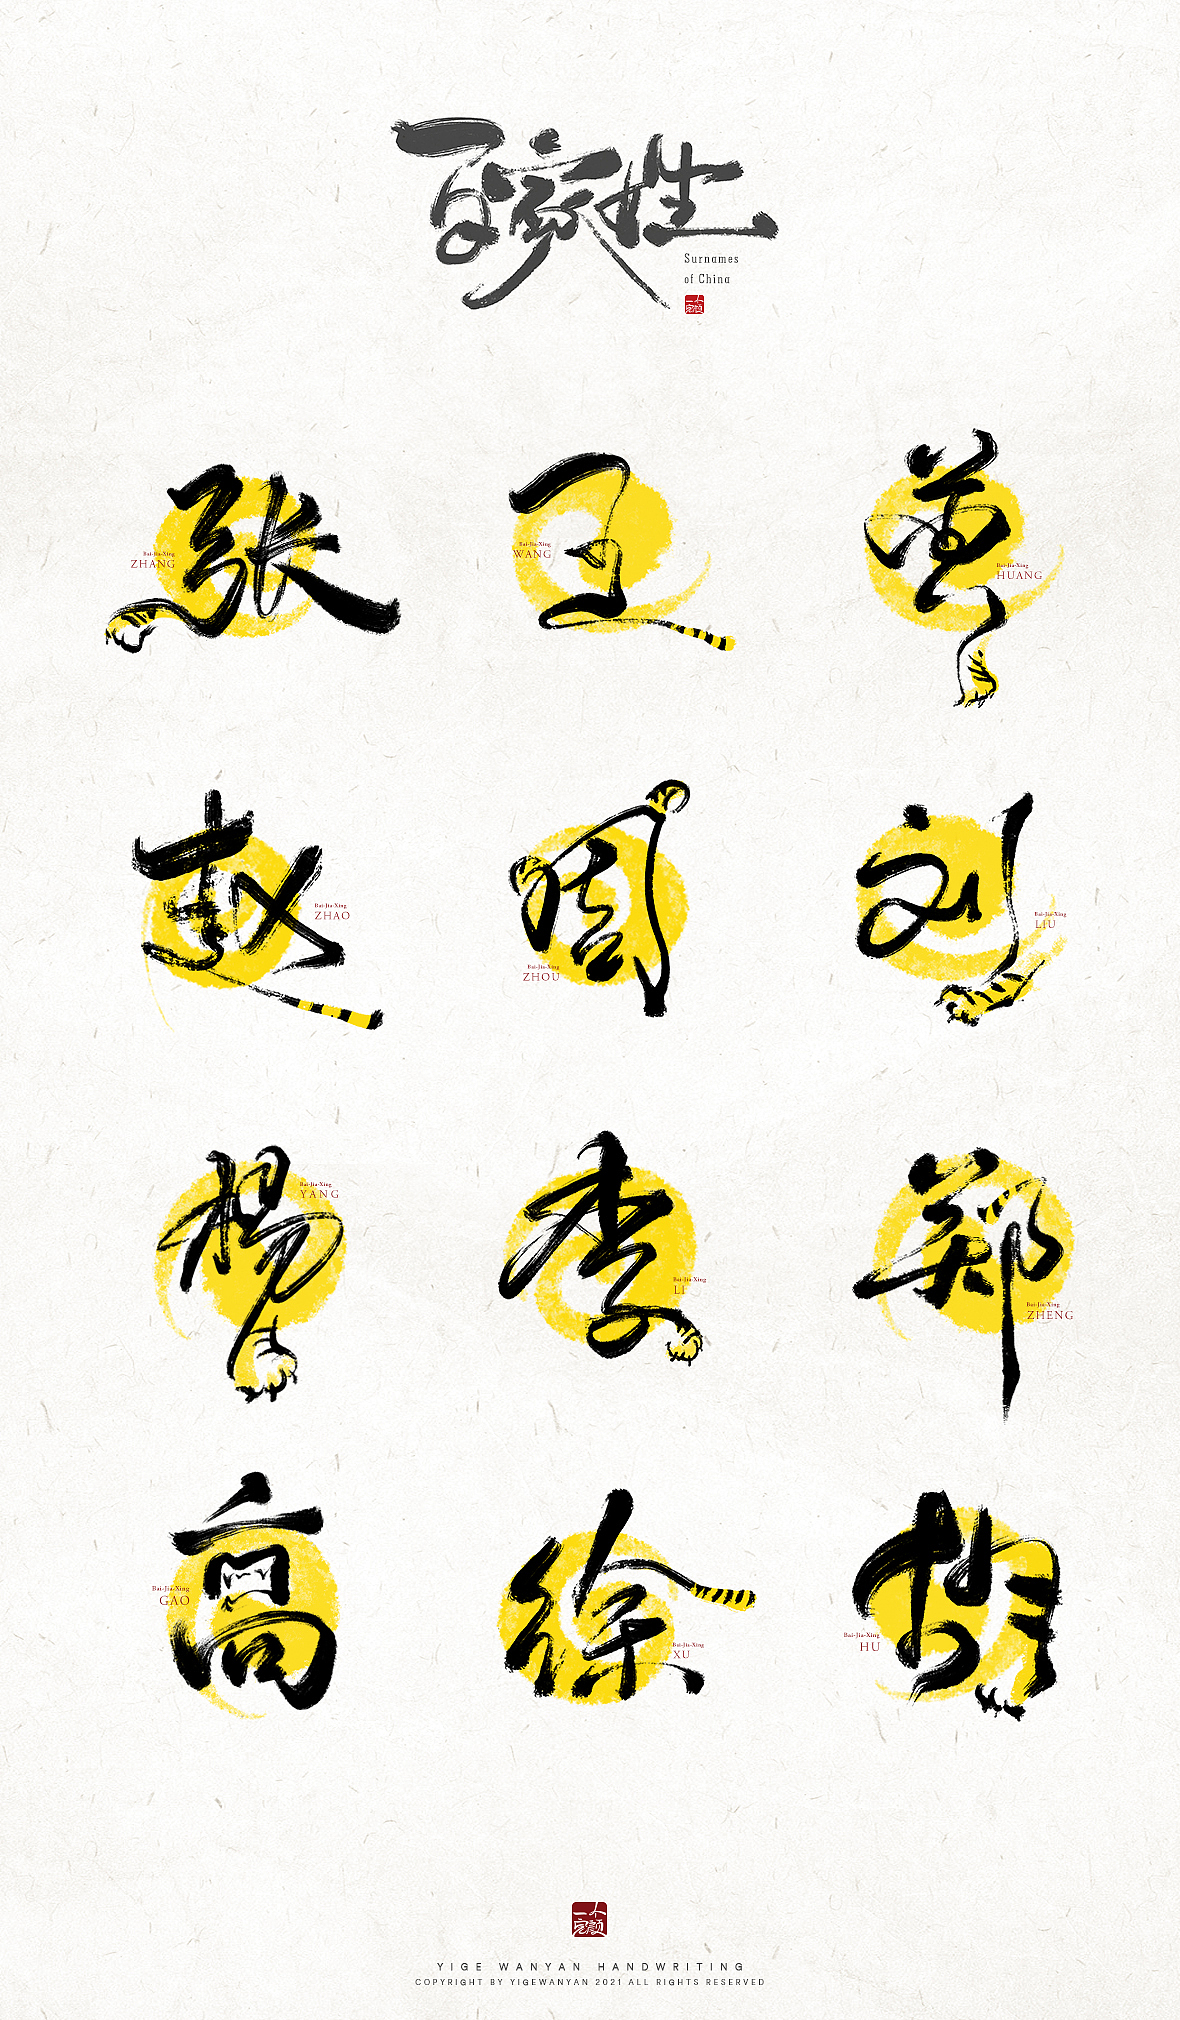 百家姓
Surnames
of China
一个
完颜
张
Bai-Jia-Xing
ZHANG
王
Bai-Jia-Xing
WANG
黄
Bai-Jia-Xing
HUANG
赵
Bai-Jia-Xing
ZHAO
周
Bai-Jia-Xing
ZHOU
刘
Bai-Jia-Xing
LIU
杨
Bai-Jia-Xing
YANG
李
Bai-Jia-Xing
LI
郑
Bai-Jia-Xing
ZHENG
高
Bai-Jia-Xing
GAO
徐
Bai-Jia-Xing
XU
胡
Bai-Jia-Xing
HU
一个
完颜
YIGE WANYAN HANDWRITING
COPYRIGHT BY YIGEWANYAN 2021 ALL RIGHTS RESERVED